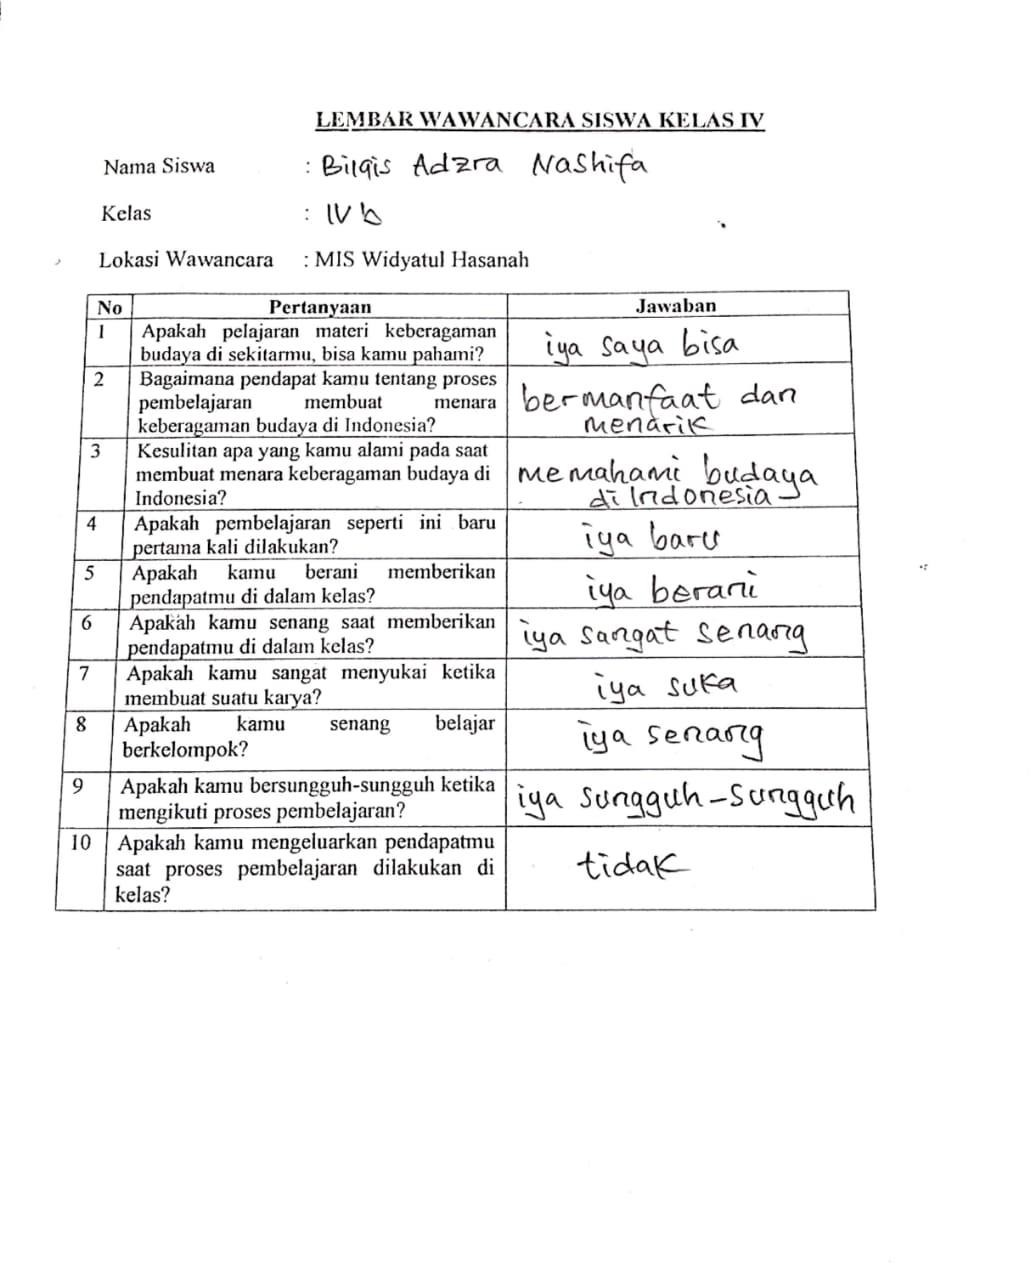 LEMBAR WAWANCARA SISWA KELAS IV
Nama Siswa : Bilqis Adzra Nashifa
Kelas : IV b
Lokasi Wawancara : MIS Widyatul Hasanah
No Pertanyaan Jawaban
1 Apakah pelajaran materi keberagaman
budaya di sekitarmu, bisa kamu pahami?
iya saya bisa
2 Bagaimana pendapat kamu tentang proses
pembelajaran membuat menara
keberagaman budaya di Indonesia?
bermanfaat dan
menarik
3 Kesulitan apa yang kamu alami pada saat
membuat menara keberagaman budaya di
Indonesia?
memahami budaya
di Indonesia
4 Apakah pembelajaran seperti ini baru
pertama kali dilakukan?
iya baru
5 Apakah kamu berani memberikan
pendapatmu di dalam kelas?
iya berani
6 Apakah kamu senang saat memberikan
pendapatmu di dalam kelas?
iya sangat senang
7 Apakah kamu sangat menyukai ketika
membuat suatu karya?
iya suka
8 Apakah kamu senang belajar
berkelompok?
iya senang
9 Apakah kamu bersungguh-sungguh ketika
mengikuti proses pembelajaran?
iya sungguh-sungguh
10 Apakah kamu mengeluarkan pendapatmu
saat proses pembelajaran dilakukan di
kelas?
tidak